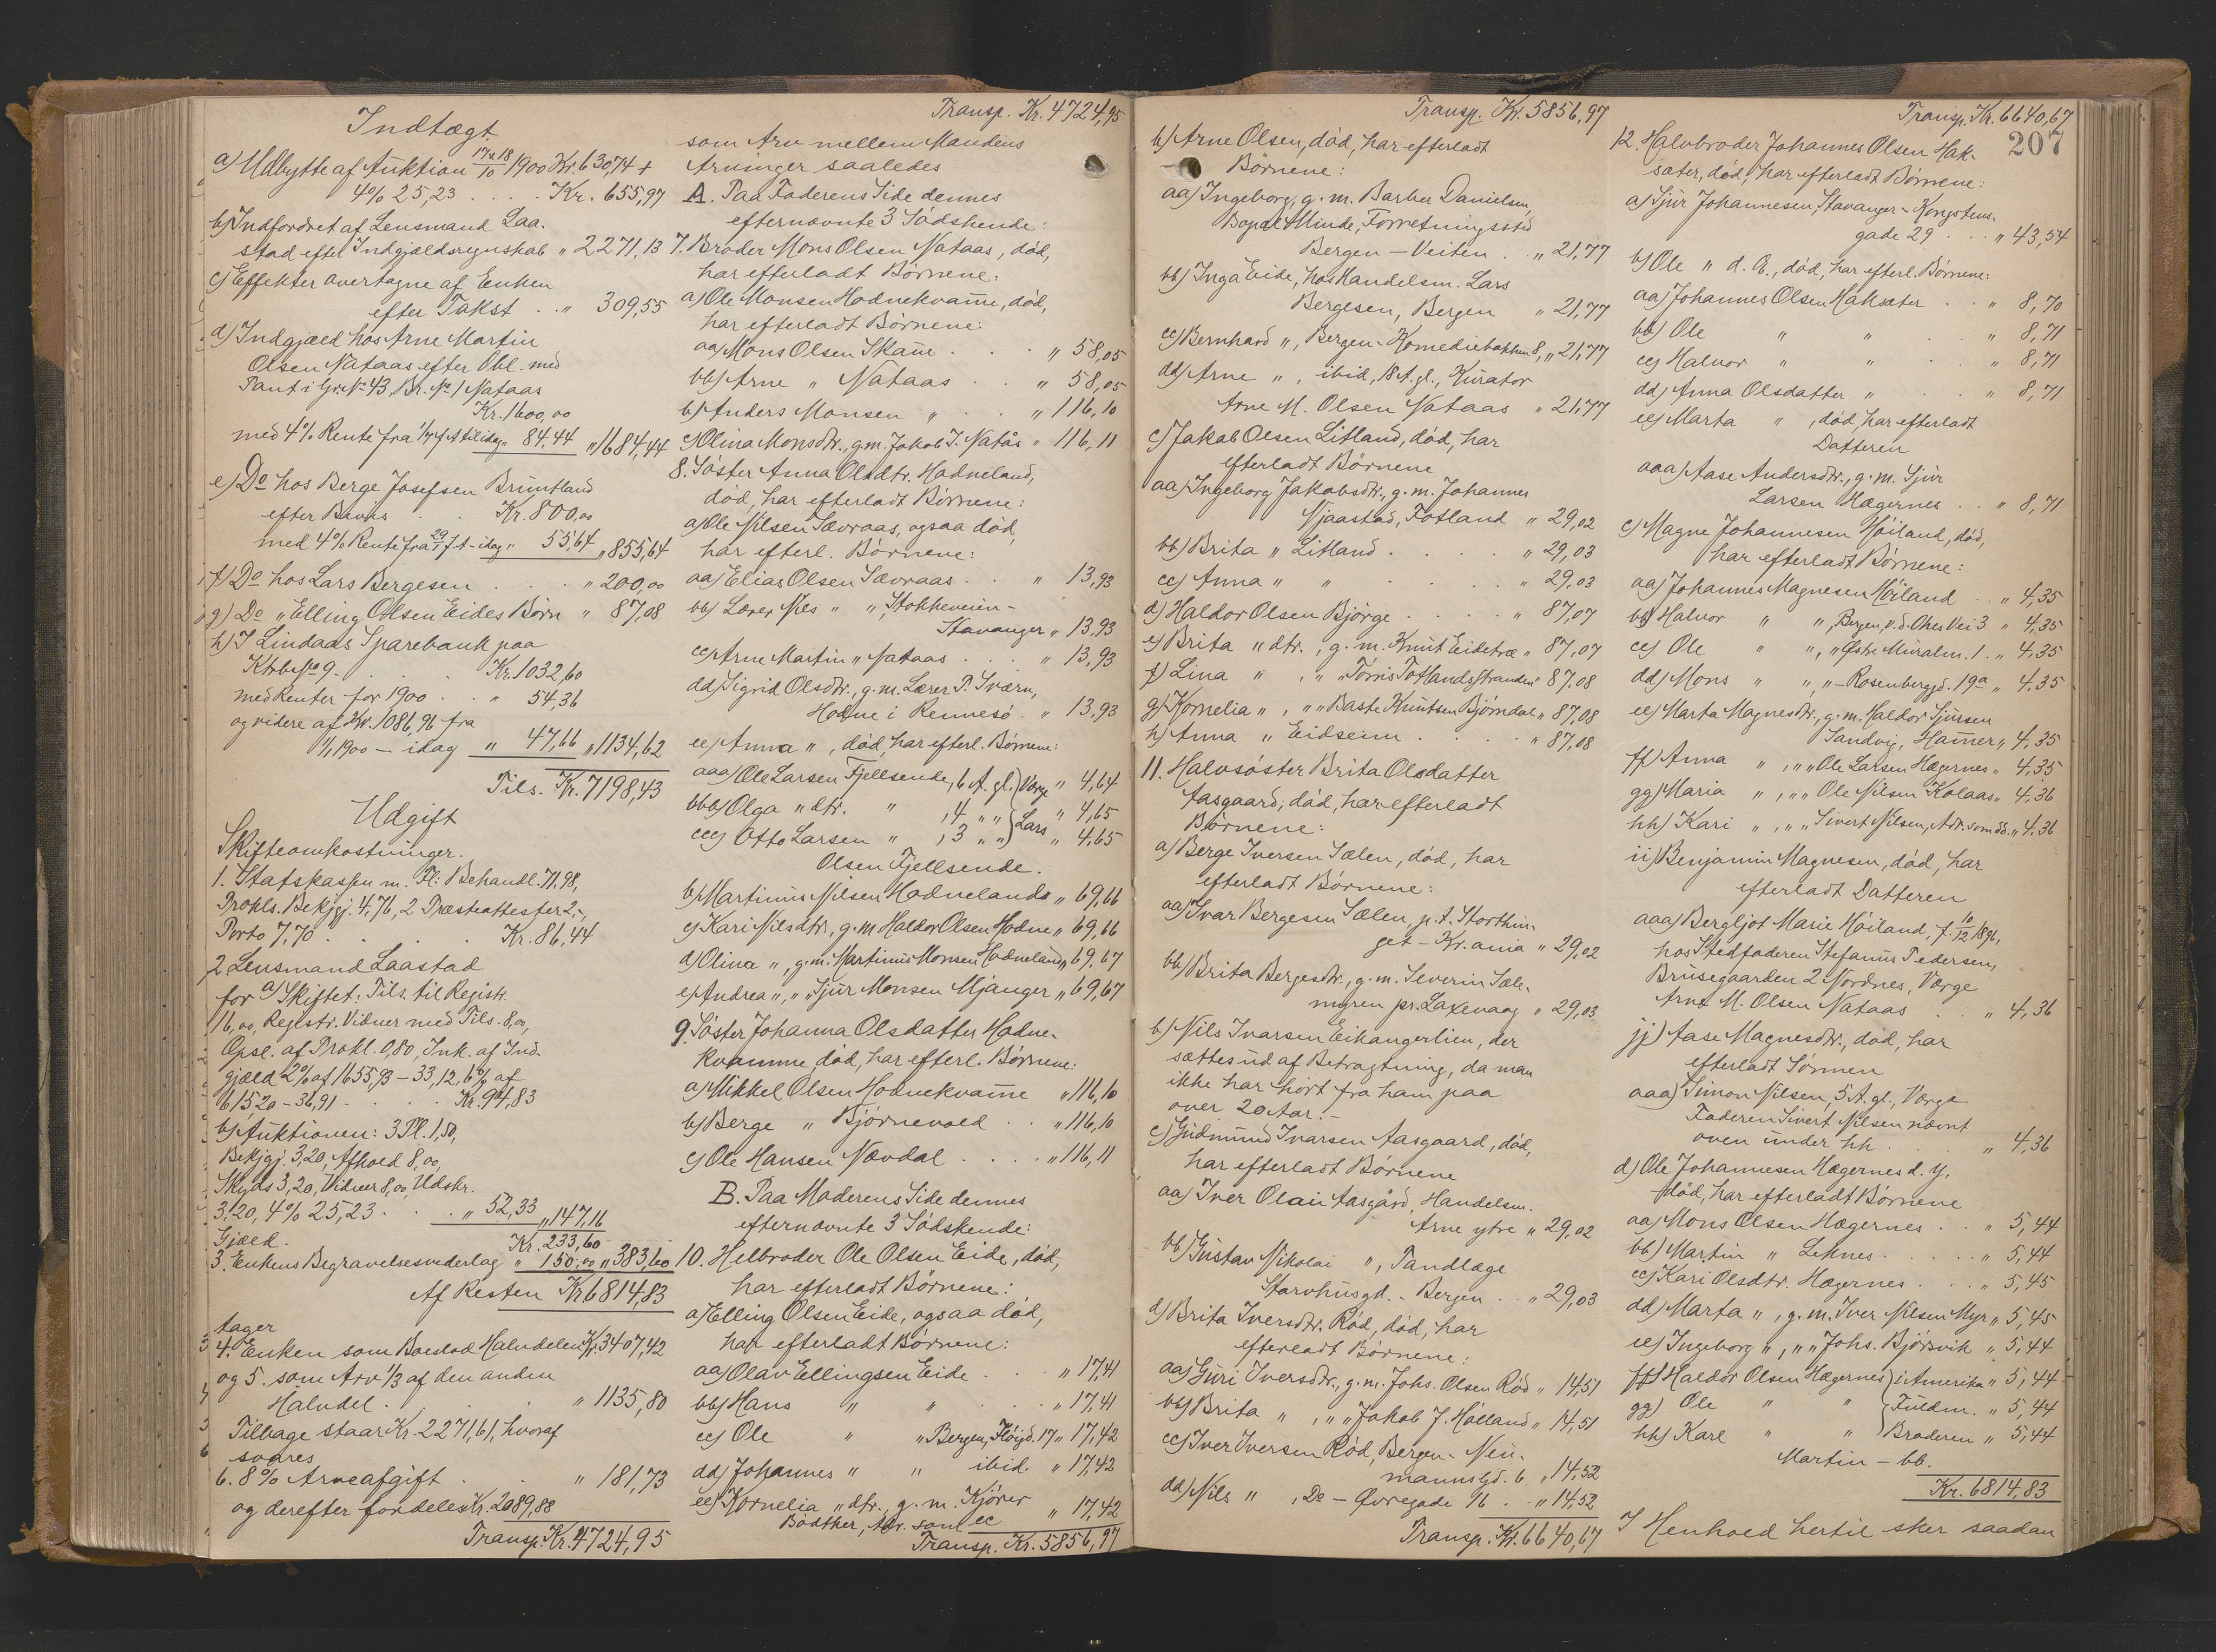 Indtægt
a) Udbytte af Auktion 17 & 18/10 1900 Kr. 630,74 +
4% 25,23 . . . . Kr. 655,97
b) Indfordret af Lensmand Laa-
stad efter Indgjældsregnskab " 2271,13
c) Effekter overtagne af Enken
efter Takst . . " 309,55
d) Indgjæld hos Arne Martin
Olsen Nataas efter Obl. med
Pant i Gr. No 43, Br. No 1 Nataas
Kr. 1600,00
med 4% Rente fra til idag " 84,44 " 1684,44
e) Do hos Berge Josefsen Bruntland
efter Bevis . . Kr. 800,00
med 4% Rente fra 29/1 f. A - idag " 55,64 " 855,64
f) Do hos Lars Bergesen . . . " 200,00
g) Do " Elling Olsen Eides Børn " 87,08
h) I Lindaas Sparebank paa
Ktrb. No 9 . . . Kr. 1032,60
med Renter for 1900 . . " 54,36
og videre af Kr. 1086,96 fra
1/1 1900 - idag " 47,66 " 1134,62
Tils. Kr. 7198,43
Udgift
Skifteomkostninger.
1. Statskassen m. Fl: Behandl. 71.98,
Prokls. Bekjgj. 4,76, 2 Præsteattester 2,-,
Porto 7,70 . . . Kr. 86,44
2. Lensmand Laastad
for a) Skiftet: Tils. til Registr.
16,00, Registr. Vidner med Tils. 8,00,
Opsl. af Prokl. 0,80, Ink. af Ind-
gjæld 2% af 1655,93 - 33,12, 6% af
615 20 - 36,91 . . . . Kr. 94,83
b) Auktionen: 3 Pl. 1,50,
Bekjgj. 3,20, Afhold 8,00,
Skyds 3,20, Vidner 8,00, Udskr.
3.20, 4% 25,23 . . . " 52,33 " 147,16
Gjæld. Kr. 233,60
3. Enkens Begravelsesvederlag " 150,00 " 383,60
Af Resten Kr. 6814,83
tager
4. Enken som Boeslod Halvdelen Kr. 3407,42
og 5. som Arv 1/3 af den anden
Halvdel . . . . " 1135,80
Tilbage staar Kr. 2271,61, hvoraf
svares
6. 8% Arveafgift . . . " 181,73
og derefter fordeles Kr. 2089,88
Transp. Kr. 4724,95
Transp. Kr. 4724,95
som Arv mellem Mandens
Arvinger saaledes
A. Paa Faderens Side dennes
efternævnte 3 Sødskende:
7. Broder Mons Olsen Nataas, død,
har efterladt Børnene:
a) Ole Monsen Hodnekvamme, død,
har efterladt Børnene:
aa) Mons Olsen Skamme . . . " 58,05
bb) Arne " Nataas . . " 58,05
b) Anders Monsen " . " 116,10
c) Olina Monsdtr., g.m. Jakob J. Natås " 116,11
8. Søster Anna Olsdtr. Hodneland,
død, har efterladt Børnene:
a) Ole Nilsen Sævraas, ogsaa død,
har efterl. Børnene:
aa) Elias Olsen Sævraas . . " 13,93
bb) Lærer Nils " ", Stokkeveien -
Stavanger " 13,93
cc) Arne Martin " Nataas . . . " 13,93
dd) Sigrid Olsdtr., g. m. Lærer P. Sværn,
Hodne i Rennesø . " 13,93
ee) Anna ", død har efterl. Børnene:
aaa) Ole Larsen Fjellsende, 6 A. gl. } Værge " 4,64
bbb) Olga " dtr. " , 4 " " " 4,65
ccc) Otto Larsen " , 3 " " } Lars " 4,65
Olsen Fjellsende.
b) Martinus Nilsen Hodnelands " 69,66
c) Kari Nilsdtr., g.m. Haldor Olsen Hodne " 69,66
d) Olina ", g.m. Martinus Monsen Hodneland " 69,67
e) Andrea ", " " Sjur Monsen Mjånger " 69,67
9. Søster Johanna Olsdatter Hodne-
kvamme, død, har efterl. Børnene:
a) Mikkel Olsen Hodnekvamme " 116,10
b) Berge " Bjørnevold . . " 116,10
c) Ole Hansen Nævdal . . . . " 116,11
B. Paa Moderens Side dennes
efternævnte 3 Sødskende:
10. Helbroder Ole Olsen Eide, død,
har efterladt Børnene:
a) Elling Olsen Eide, ogsaa død,
har efterladt Børnene:
aa) Olav Ellingsen Eide . . . " 17,41
bb) Hans " " . . . " 17,41
cc) Ole " " Bergen, Fløigd. 17 " 17,42
dd) Johannes " " ibid. " 17,42
ee) Kornelia " dtr., g. m. Kjører
Bødtker, Adr. som cc " 17,42
Transp. Kr. 5856,97
Transp. Kr. 5856,97
b) Arne Olsen, død, har efterladt
Børnene:
aa) Ingeborg, g. m. Barber Danielsen,
Bopæl Minde, Forretningssted
Bergen - Veiten . . " 21,77
bb) Inga Eide, hos Handelsm. Lars
Bergesen, Bergen " 21,77
cc) Bernhard ", Bergen - Komediebakken 8, " 21,77
dd) Arne ", ibid, 18 A. gl., Kurator
Arne M. Olsen Nataas " 21,77
c) Jakob Olsen Litland, død, har
efterladt Børnene
aa) Ingeborg Jakobsdtr., g. m. Johannes
Mjaastad, Fotland " 29,02
bb) Brita " Litland . . . . " 29,03
cc) Anna " " . . . . " 29,03
d) Haldor Olsen Bjørge . . . . " 87,07
e) Brita " dtr., g. m. Knut Eidetræ " 87,07
f) Lina ", " " Tørris Totlandsstranden " 87,08
g) Kornelia ", " " Baste Knutsen Bjørndal " 87,08
h) Anna " Eidseim . . . . " 87,08
11. Halvsøster Brita Olsdatter
Aasgaard, død, har efterladt
Børnene:
a) Berge Iversen Sælen, død, har
efterladt Børnene:
aa) Ivar Bergesen Sælen, p. t. Storthin-
get - Kr.ania " 29,02
bb) Brita Bergesdtr., g. m. Severin Sæle-
myren pr. Laxevaag " 29,03
b) Nils Ivarsen Eikangerlien, der
sættes ud af Betragtning, da man
ikke har hørt fra ham paa
over 20 Aar. -
c) Gudmund Ivarsen Aasgaard, død,
har efterladt Børnene
aa) Iver Olai Aasgård, Handelsm.
Arne ytre " 29,02
bb) Gustav Nikolai ", Tandlæge
Starvhusgd. - Bergen . . " 29,03
d) Brita Iversdtr. Rød, død, har
efterladt Børnene:
aa) Guri Iversdtr., g. m. Johs. Olsen Rød " 14,51
bb) Brita ", " " Jakob J. Hølland " 14,51
cc) Iver Iversen Rød, Bergen - Neu-
mannsgd. 6 " 14,52
dd) Nils ", Do - Øvregade 16 . . " 14,52
Transp. Kr. 6640,67
Transp. Kr. 6640,67
207
12. Halvbroder Johannes Olsen Hak-
sæter, død, har efterladt Børnene:
a) Sjur Johannesen, Stavanger - Kongstens-
gade 29 . . . " 43,54
b) Ole " d. E., død, har efterl. Børnene:
aa) Johannes Olsen Haksæter . . " 8,70
bb) Ole " " . . " 8,71
cc) Halvor " " . " 8,71
dd) Anna Olsdatter " . . " 8,71
ee) Marta ", død, har efterladt
Datteren
aaa) Aase Andersdtr., g. m. Sjur
Larsen Hægernes . . " 8,71
c) Magne Johannesen Høiland, død,
har efterladt Børnene:
aa) Johannes Magnesen Høiland . . " 4,35
bb) Halvor " ", Bergen, v. d. Ohes Vei 3 " 4,35
cc) Ole " ", " Østre Muralm. 1 . " 4,35
dd) Mons " ", " - Rosenberggd. 19a " 4,35
ee) Marta Magnesdtr., g. m. Haldor Sjursen
Sandvig, Hammer " 4,35
ff) Anna ", " " Ole Larsen Hægernes " 4,35
gg) Maria ", " " Ole Nilsen Kolaas " 4,36
hh) Kari ", " " Sivert Nilsen, Adr. som dd. " 4,36
ii) Benjamin Magnesen, død, har
efterladt Datteren
aaa) Bergljot Marie Høiland, f. 10/12 1896,
hos Stedfaderen Stefanus Pedersen,
Brusegaarden 2 Nordnes, Værge
Arne M. Olsen Nataas . . " 4,36
jj) Aase Magnesdtr., død, har
efterladt Sønnen
aaa) Simon Nilsen, 5 A. gl., Værge
Faderen Sivert Nilsen nævnt
oven under hh . . . . " 4,36
d) Ole Johannesen Hægernes d. y.,
død, har efterladt Børnene
aa) Mons Olsen Hægernes . . " 5,44
bb) Martin " Leknes . . . . " 5,44
cc) Kari Olsdtr. Hægernes . . " 5,45
dd) Marta ", g. m. Iver Nilsen Myr " 5,45
ee) Ingeborg ", " " Johs. Bjørsvik " 5,44
ff) Haldor Olsen Hægernes } i Amerika " 5,44
gg) Ole " " } Fuldm. " 5,44
hh) Karl " " } Broderen " 5,44
Martin - bb.
Kr. 6814,83
I Henhold hertil sker saadan